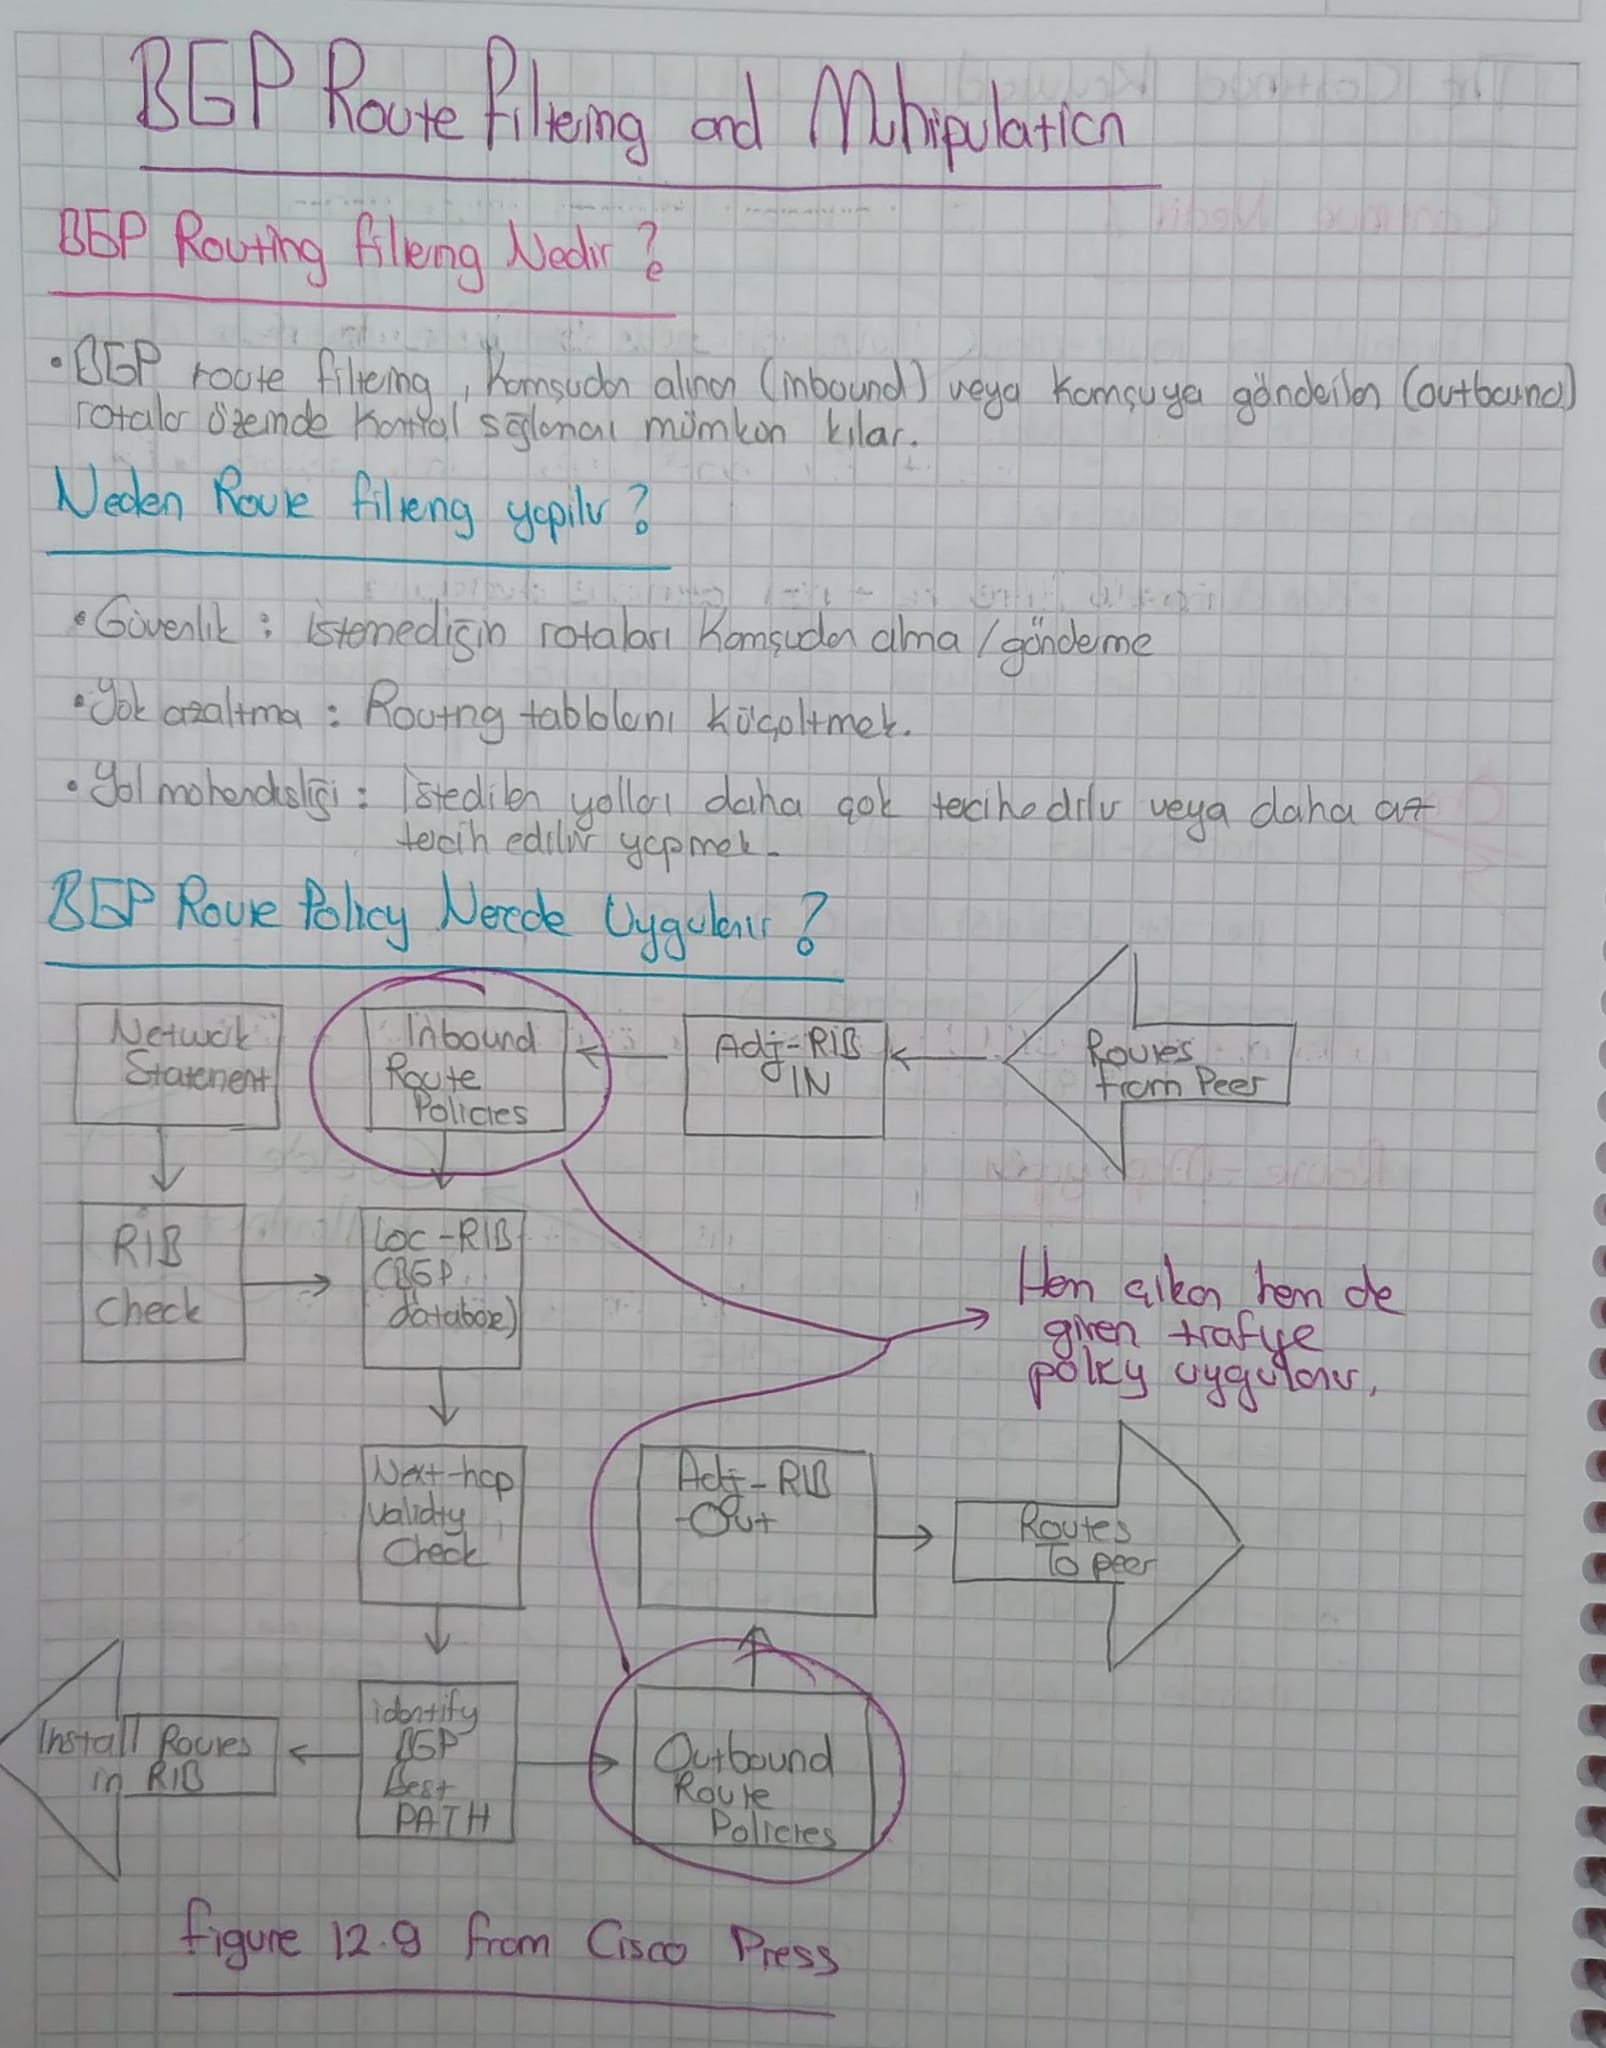 BGP Route Filtering and Manipulation
BGP Routing Filtering Nedir ?
• BGP route filtering, Komşudan alınan (inbound) veya Komşuya gönderilen (outbound)
rotalar üzerinde Kontrol sağlamayı mümkün kılar.
Neden Route Filtering yapılır ?
• Güvenlik : istemediğin rotaları Komşudan alma / gönderme
• Yük azaltma : Routing tablolarını Küçültmek.
• Yol mühendisliği : İstedilen yolları daha çok tercih edilir veya daha az
tercih edilir yapmak.
BGP Route Policy Nerede Uygulanır ?
Network
Statement
Inbound
Route
Policies
Adj-RIB
IN
Routes
from Peer
RIB
check
Loc-RIB
(BGP
database)
Hem çıkan hem de
giren trafiğe
policy uygulanır.
Next-hop
Validity
Check
Adj-RIB
-Out
Routes
To peer
Install Routes
in RIB
identify
BGP
Best
PATH
Outbound
Route
Policies
figure 12.9 from Cisco Press